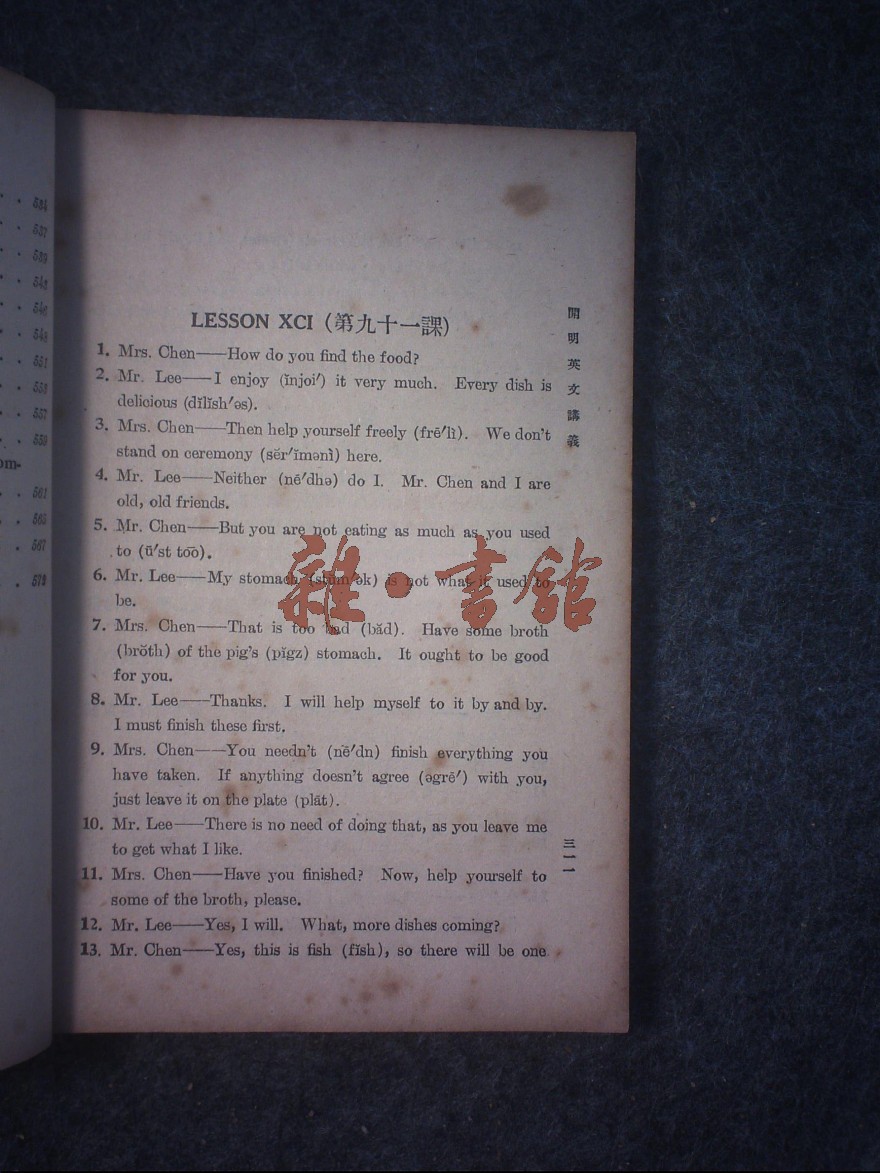 534
537
539
542
546
548
551
553
557
559
om-
561
565
567
573
LESSON XCI (第九十一課)
1. Mrs. Chen——How do you find the food?
2. Mr. Lee——I enjoy (ĭnjoi′) it very much. Every dish is
delicious (dĭlĭsh′əs).
3. Mrs. Chen——Then help yourself freely (frē′lì). We don't
stand on ceremony (sĕr′ĭmənì) here.
4. Mr. Lee——Neither (nē′dhə) do I. Mr. Chen and I are
old, old friends.
5. Mr. Chen——But you are not eating as much as you used
to (ū′st to͞o).
6. Mr. Lee——My stomach (stŭm′ək) is not what it used to
be.
7. Mrs. Chen——That is too bad (băd). Have some broth
(brŏth) of the pig's (pĭgz) stomach. It ought to be good
for you.
8. Mr. Lee——Thanks. I will help myself to it by and by.
I must finish these first.
9. Mrs. Chen——You needn't (nē′dn) finish everything you
have taken. If anything doesn't agree (əgrē′) with you,
just leave it on the plate (plāt).
10. Mr. Lee——There is no need of doing that, as you leave me
to get what I like.
11. Mrs. Chen——Have you finished? Now, help yourself to
some of the broth, please.
12. Mr. Lee——Yes, I will. What, more dishes coming?
13. Mr. Chen——Yes, this is fish (fĭsh), so there will be one
開明英文講義
三一一
雜·書館